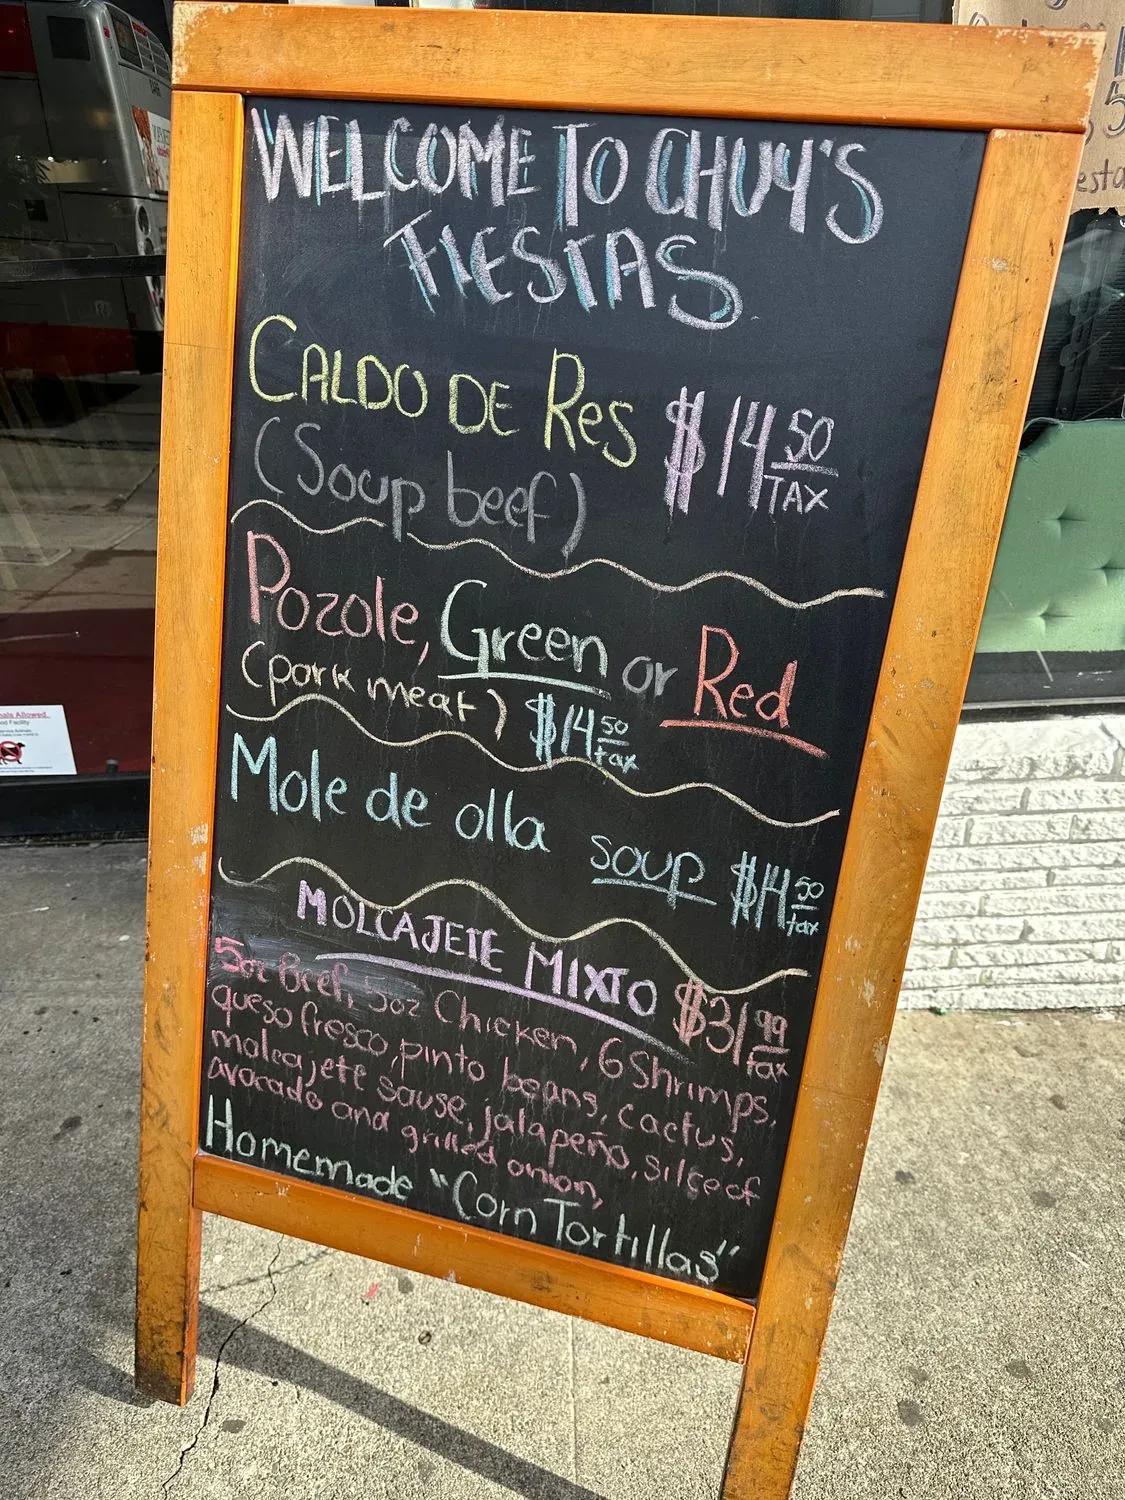 WELCOME TO CHUY'S
FIESTAS
CALDO DE Res $14 50
TAX
(Soup beef)
Pozole, Green or Red
(pork meat) $14 50
tax
Mole de olla soup $14 50
tax
MOLCAJETE MIXTO $31 99
tax
5oz Beef, 5oz Chicken, 6 Shrimps,
queso fresco, pinto beans, cactus,
molcajete sause, jalapeño, silce of
avocado and grilled onion,
Homemade "Corn Tortillas"
als Allowed
od Facility